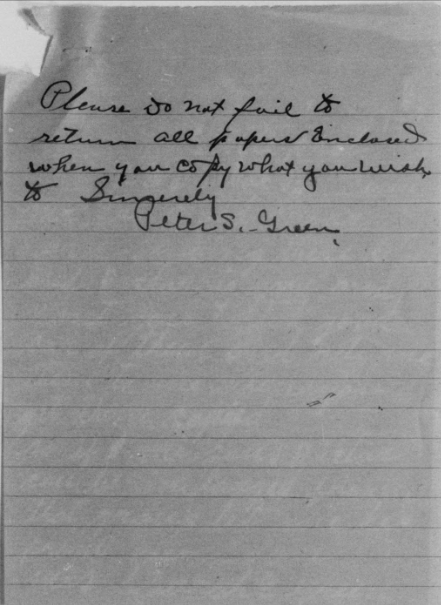 Please do not fail to
return all papers Enclosed
when you copy what you wish
to Sincerely
Peter S. Green